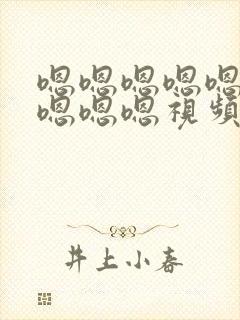 嗯嗯嗯嗯嗯
嗯嗯嗯視頻
井上小春